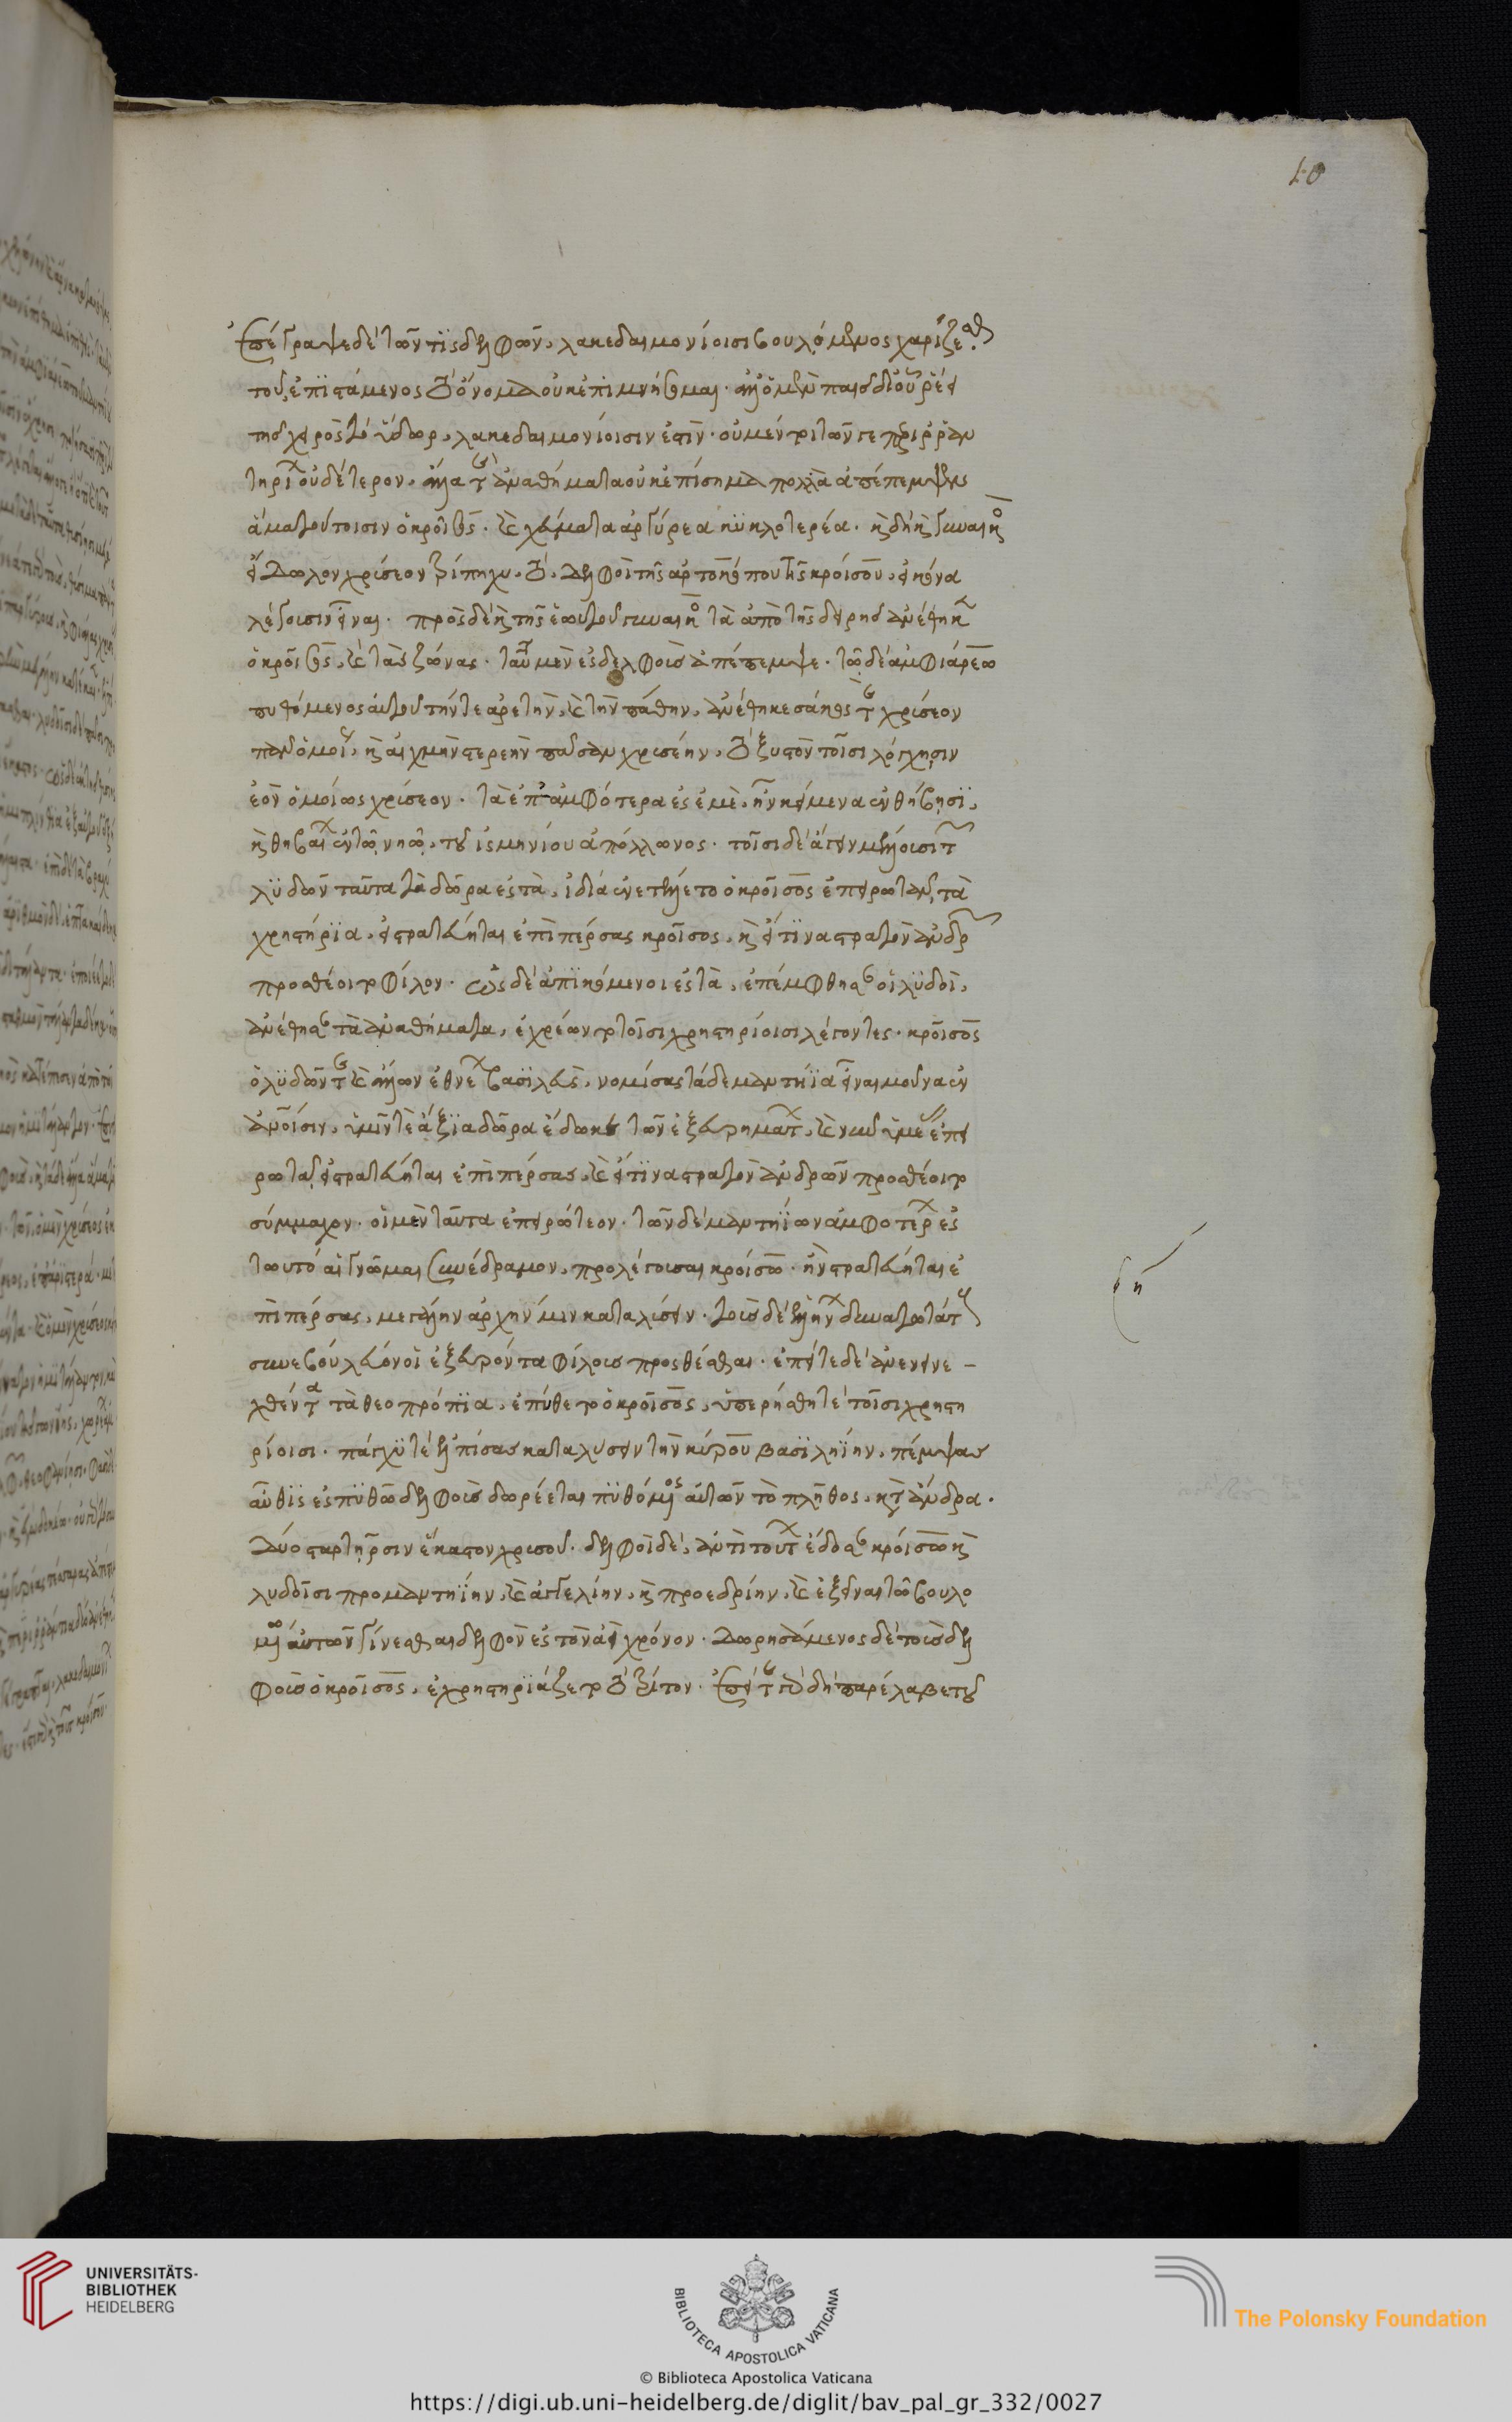 ἐπέγραψε δὲ τῶν τις δελφῶν, λακεδαιμονίοισι βουλόμενος χαρίζεσθαι.
τοῦ ἐπιστάμενος τὸ ὄνομα οὐκ ἐπιμνήσομαι. ἀλλ' ὁ μὲν παῖς δι' οὗ ῥέει
τῆς χειρὸς τὸ ὕδωρ, λακεδαιμονίοισιν ἐστίν. οὐ μέντοι τῶν γε περιρραν
τηρίων οὐδέτερον. ἄλλα τε ἀναθήματα οὐκ ἐπίσημα πολλὰ ἀπέπεμψε
ἅμα τούτοισιν ὁ κροῖσος. καὶ χεύματα ἀργύρεα κυκλοτερέα. καὶ δὴ καὶ γυναικὸς
εἴδωλον χρύσεον τρίπηχυ. τὸ δελφοὶ τῆς ἀρτοκόπου τῆς κροίσου, εἰκόνα
λέγουσιν εἶναι. πρὸς δὲ καὶ τῆς ἑωυτοῦ γυναικὸς τὰ ἀπὸ τῆς δειρῆς ἀνέθηκε
ὁ κροῖσος, καὶ τὰς ζώνας. ταῦτα μὲν ἐς δελφοὺς ἀπέπεμψε. τῷ δὲ ἀμφιάρεῳ
πυθόμενος αὐτοῦ τήν τε ἀρετὴν, καὶ τὴν πάθην, ἀνέθηκε σάκος τε χρύσεον
πᾶν ὁμοίως, καὶ αἰχμὴν στερεὴν πᾶσαν χρυσέην, τὸ ξυστὸν τοῖσι λόγχῃσιν
ἐὸν ὁμοίως χρύσεον. τὰ ἔτι ἀμφότερα ἐς ἐμὲ, ἦν κείμενα ἐν θήβῃσι,
καὶ θηβαίων ἐν τῷ νηῷ, τοῦ ἰσμηνίου ἀπόλλωνος. τοῖσι δὲ ἄγειν μέλλουσι τῶν
λυδῶν ταῦτα τὰ δῶρα ἐς τὰ, ἱρὰ ἐνετέλλετο ὁ κροῖσος ἐπειρωτᾶν τὰ
χρηστήρια, εἰ στρατεύηται ἐπὶ πέρσας κροῖσος, καὶ εἴ τινα στρατὸν ἀνδρῶν
προσθέοιτο φίλον. ὡς δὲ ἀπικόμενοι ἐς τὰ, ἐπέμφθησαν οἱ λυδοὶ,
ἀνέθησαν τὰ ἀναθήματα, ἐχρέωντο τοῖσι χρηστηρίοισι λέγοντες. κροῖσος
ὁ λυδῶν τε καὶ ἄλλων ἐθνέων βασιλεὺς, νομίσας τάδε μαντήια εἶναι μοῦνα ἐν
ἀνθρώποισιν, ὑμῖν τε ἄξια δῶρα ἔδωκε τῶν ἐξευρημάτων, καὶ νῦν ὑμέας ἐπει
ρωτᾷ, εἰ στρατεύηται ἐπὶ πέρσας, καὶ εἴ τινα στρατὸν ἀνδρῶν προσθέοιτο
σύμμαχον. οἱ μὲν ταῦτα ἐπειρώτεον. τῶν δὲ μαντηίων ἀμφοτέρων ἐς
τωυτὸ αἱ γνῶμαι συνέδραμον, προλέγουσαι κροίσῳ. ἢν στρατεύηται ἐ
πὶ πέρσας, μεγάλην ἀρχήν μιν καταλύσειν. τοὺς δὲ ἑλλήνων δυνατωτάτους
συνεβούλευόν οἱ ἐξευρόντα φίλους προσθέσθαι. ἐπεί τε δὲ ἀνενεί
χθέντα τὰ θεοπρόπια, ἐπύθετο ὁ κροῖσος, ὑπερήσθη τε τοῖσι χρηστη
ρίοισι. πάγχυ τε ἐλπίσας καταλύσειν τὴν κύρου βασιληίην, πέμψας
αὖθις ἐς πυθὼ δελφοὺς δωρέεται πυθόμενος αὐτῶν τὸ πλῆθος. κατ' ἄνδρα.
δύο στατῆρσιν ἕκαστον χρυσοῦ. δελφοὶ δὲ, ἀντὶ τούτων ἔδοσαν κροίσῳ καὶ
λυδοῖσι προμαντηίην, καὶ ἀτελίην, καὶ προεδρίην, καὶ ἐξεῖναι τῷ βουλο
μένῳ αὐτῶν γίνεσθαι δελφὸν ἐς τὸν ἀεὶ χρόνον. δωρησάμενος δὲ τοὺς δελ
φοὺς ὁ κροῖσος, ἐχρηστηριάζετο τὸ τρίτον. ἐπεί τε γὰρ δὴ παρέλαβε τοῦ
UNIVERSITÄTS-
BIBLIOTHEK
HEIDELBERG
BIBLIOTECA APOSTOLICA VATICANA
The Polonsky Foundation
© Biblioteca Apostolica Vaticana
https://digi.ub.uni-heidelberg.de/diglit/bav_pal_gr_332/0027